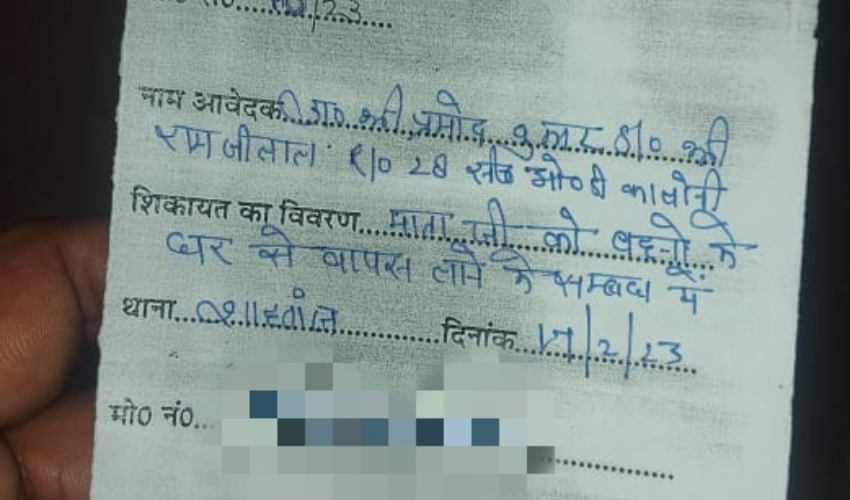 /23
नाम आवेदक डा० श्री प्रमोद कुमार S/o श्री
रामजीलाल R/o 28 सीज ओ०डी कालोनी
शिकायत का विवरण माता जी को बहनों के
घर से वापस लाने के सम्बध में
थाना दिनांक 17/2/23
मो० नं०